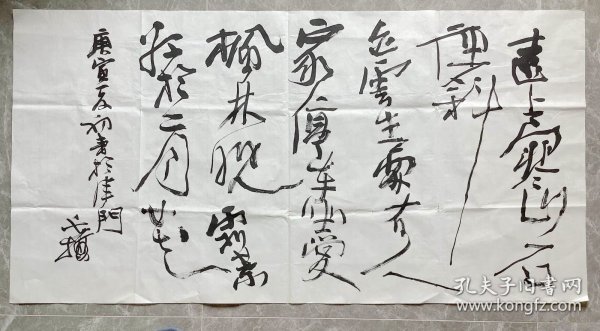 遠上寒山石
徑斜
白雲生處有人
家停車坐愛
楓林晚霜葉
紅於二月花
庚寅夏初書於津門
孔夫子旧书网
www.kongfz.com